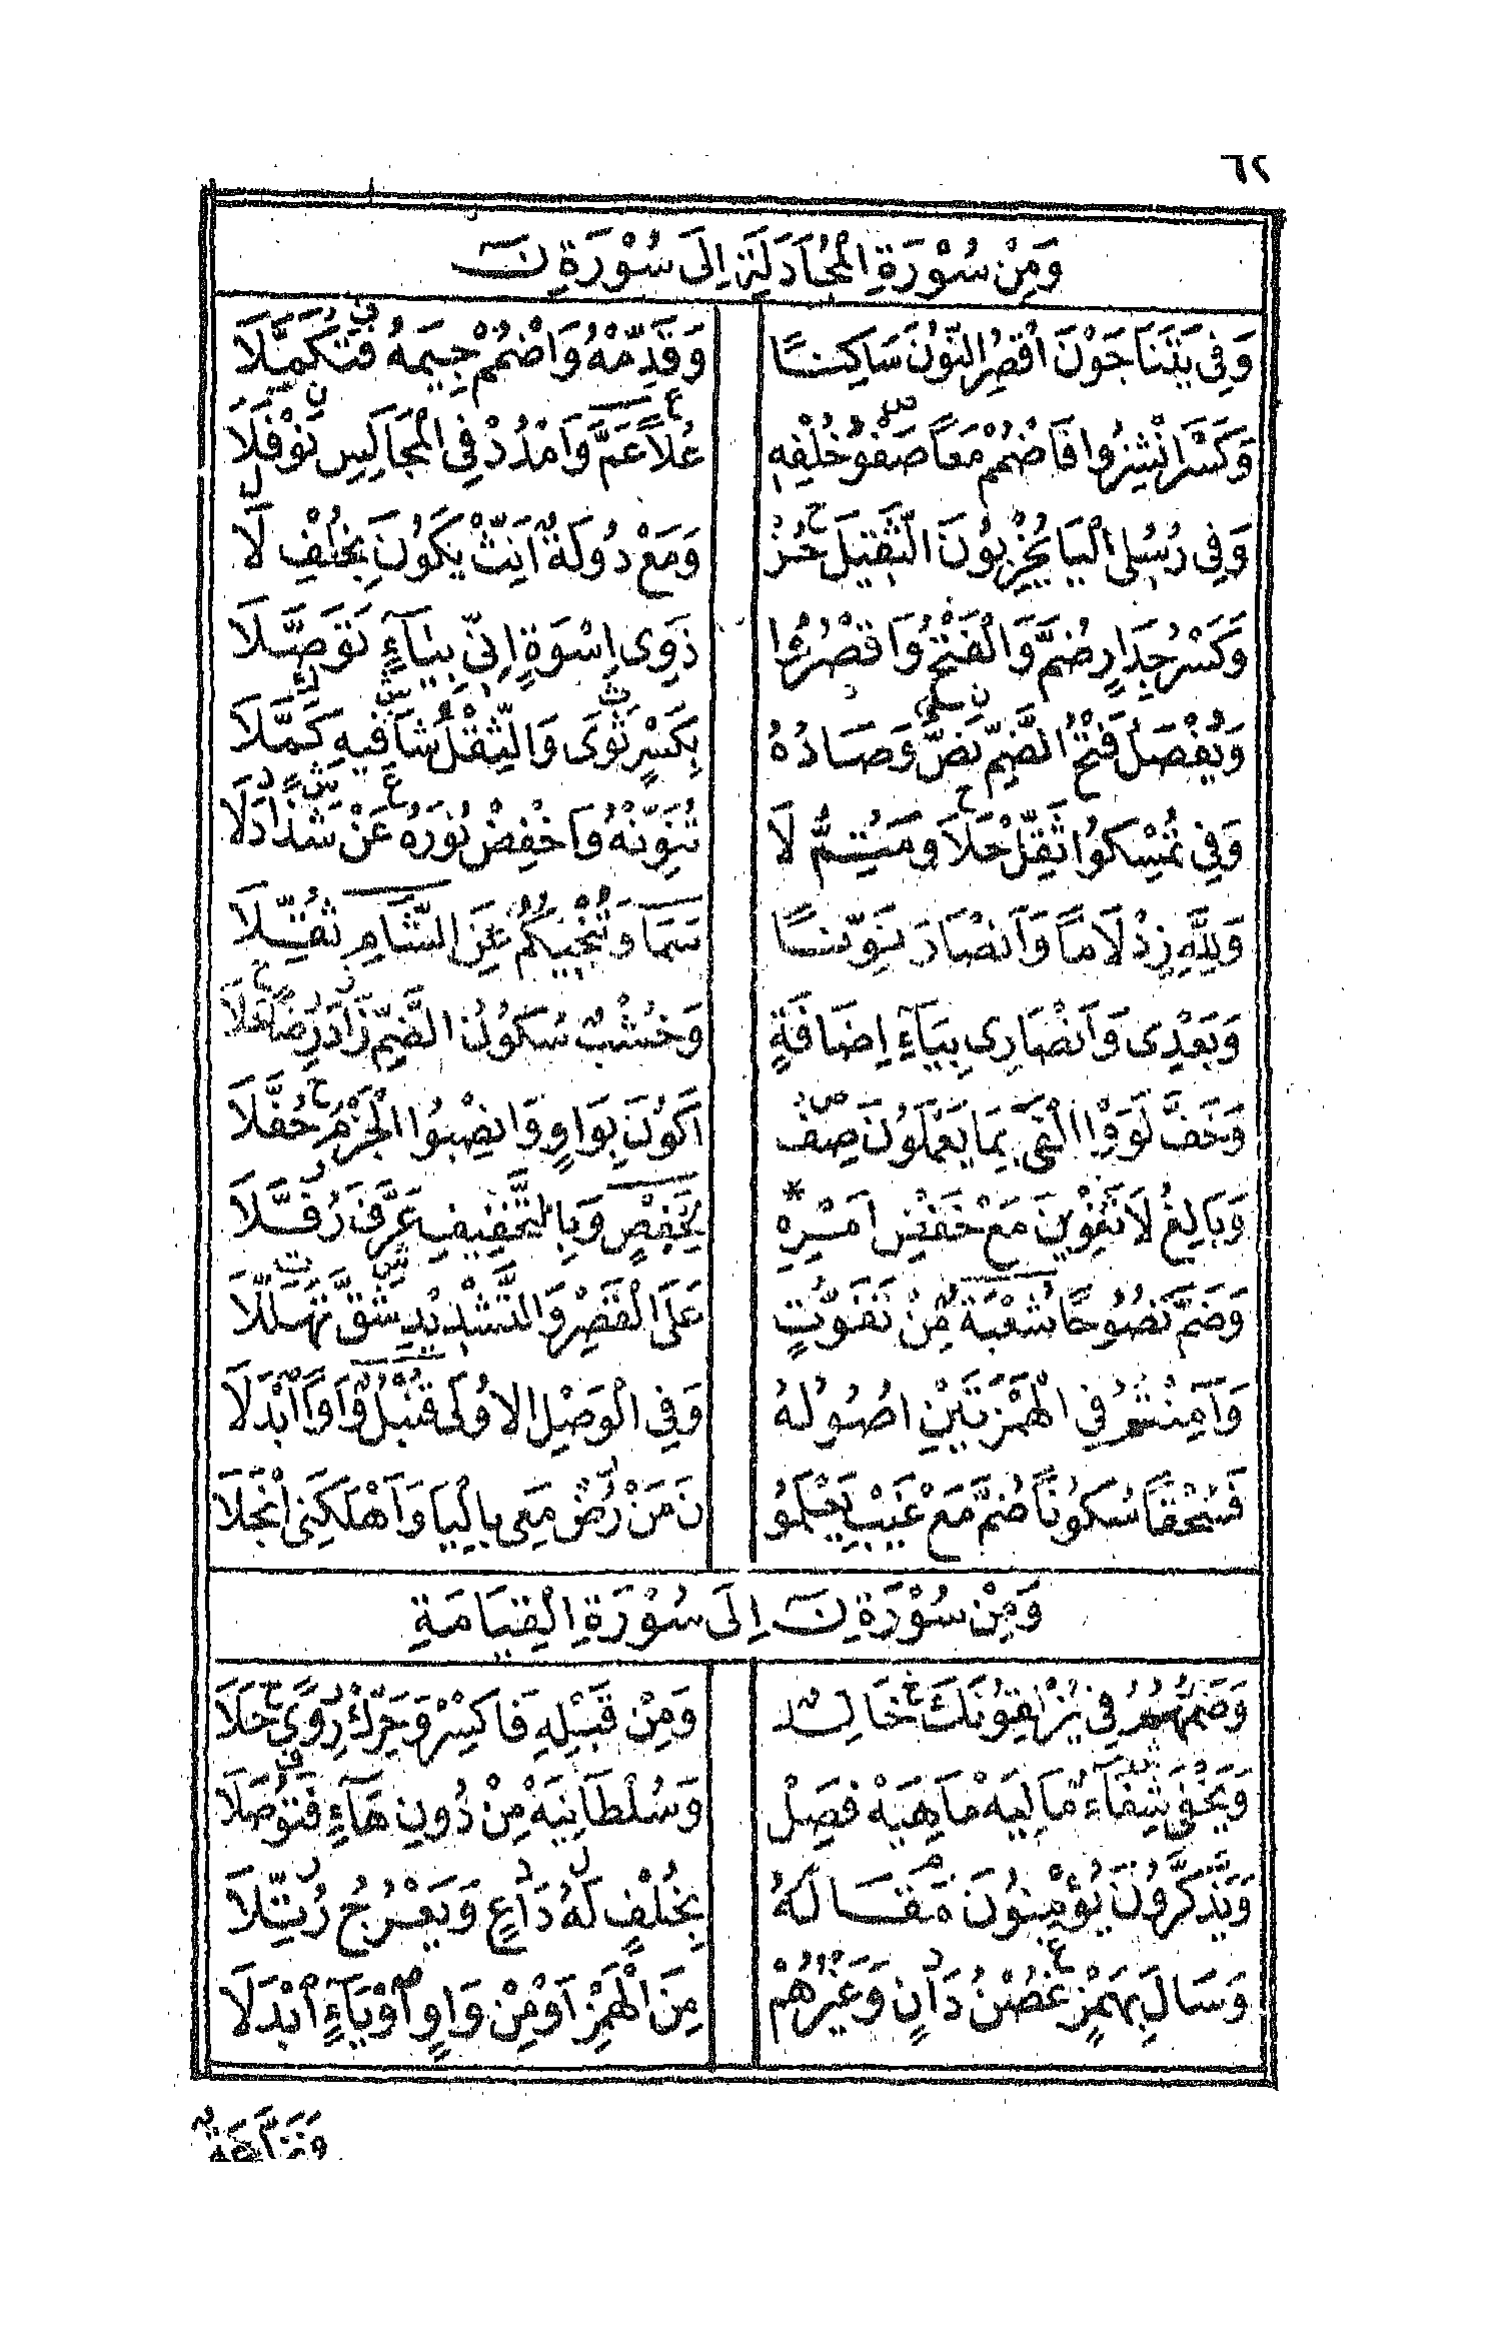 ٦٢
وَمِنْ سُوْرَةِ الْمُجَادَلَةِ اِلَى سُوْرَةِ نَ
وَفِى يَتَنَاجَوْنَ اقْصُرِ النُّوْنَ سَاكِنًا وَقَدِّمْهُ وَاضْمُمْ جِيمَهُ فَتُكَمِّلَا
وَكَسْرَ انْشِزُوا فَاضْمُمْ مَعًا صَفْوُ خُلْفِهِ عُلاً عَمَّ وَامْدُدْ فِى الْمَجَالِسِ نَوْفَلَا
وَفِى رُسُلِى الْيَا يُخْرِبُوْنَ الثَّقِيْلَ حُزْ وَمَعْ دُولَةٌ اَنِّثْ يَكُوْنَ بِخُلْفِ لَا
وَكَسْرُ جِدَارٍ ضُمَّ وَالْفَتْحُ وَاقْصُرُوا ذَوِى اِسْوَةٍ اِنِّى بِيَاءٍ تَوَصَّلَا
وَيُفْصَلُ فَتْحُ الضَّمِّ نَصٌّ وَصَادُهُ بِكَسْرٍ ثَوَى وَالثِّقْلُ شَافِيهِ كَمَّلَا
وَفِى تُمْسِكُوا ثَقِّلْ حَلَا وَمُتِمُّ لَا تُنَوِّنْهُ وَاخْفِضْ نُوْرَهُ عَنْ شَذًا دَلَا
وَلِلّٰهِ زِدْ لَامًا وَاَنْصَارَ نَوِّنًا سَمَا وَتُنْجِيكُمْ عَنِ الشَّامِ ثُقِّلَا
وَبَعْدِى وَاَنْصَارِى بِيَاءِ اِضَافَةٍ وَخُشْبٌ سُكُوْنُ الضَّمِّ زَادَ رِضًا حَلَا
وَخَفَّ لَوَوْا اِلْفًا بِمَا يَعْمَلُوْنَ صِفْ اَكُوْنَ بِوَاوٍ وَانْصِبُوا الْجَزْمَ حُفَّلَا
وَبَالِغُ لَا تَنْوِيْنَ مَعْ خَفْضِ اَمْرِهِ لِحَفْصٍ وَبِالتَّخْفِيفِ عَرَّفَ رُفِّلَا
وَضَمَّ نَصُوْحًا شُعْبَةٌ مِنْ تَفَوُّتٍ عَلَى الْقَصْرِ وَالتَّشْدِيْدِ شَقَّ تَهَلُّلَا
وَآمِنْتُمُ فِى الْهَمْزَتَيْنِ اُصُوْلُهُ وَفِى الْوَصْلِ الاُوْلَى قُنْبُلٌ وَاوًا اَبْدَلَا
فَسُحْقًا سُكُوْنًا ضُمَّ مَعْ غَيْبِ يَعْلَمُو نَ مَنْ رُضْ مَعِى بِالْيَا وَاَهْلَكَنِى انْجَلَا
وَمِنْ سُوْرَةِ نَ اِلَى سُوْرَةِ الْقِيَامَةِ
وَضَمُّهُمُ فِى يُزْلِقُوْنَكَ خَالِدٌ وَمِنْ قَبْلِهِ فَاكْسِرْ وَحَرِّكْ رِوًى حَلَا
وَيَخْفَى شِفَاءً مَالِيَهْ مَاهِيَهْ فَصِلْ وَسُلْطَانِيَهْ مِنْ دُونِ هَاءٍ فَتُوْصَلَا
وَيَذَّكَّرُوْنَ يُؤْمِنُوْنَ مَقَالُهُ بِخُلْفٍ لَهُ دَاعٍ وَيَعْرُجُ رُتِّلَا
وَسَالَ بِهَمْزٍ غُصْنُ دَانٍ وَغَيْرُهُمْ مِنَ الْهَمْزِ اَوْ مِنْ وَاوٍ اَوْ يَاءٍ اَبْدَلَا
وَنَزَّاعَةً